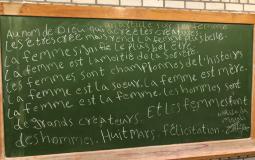 Au nom de Dieu qui a créé les créatures.
Les êtres créés mais
La femme signifie le plus bel être.
La femme est la moitié de la société.
Les femmes sont championnes de l'histoire
La femme est la soeur. La femme est mère.
La femme est la femme. Les hommes sont
de grands créateurs. Et les femmes font
des hommes. Huit Mars, félicitation.